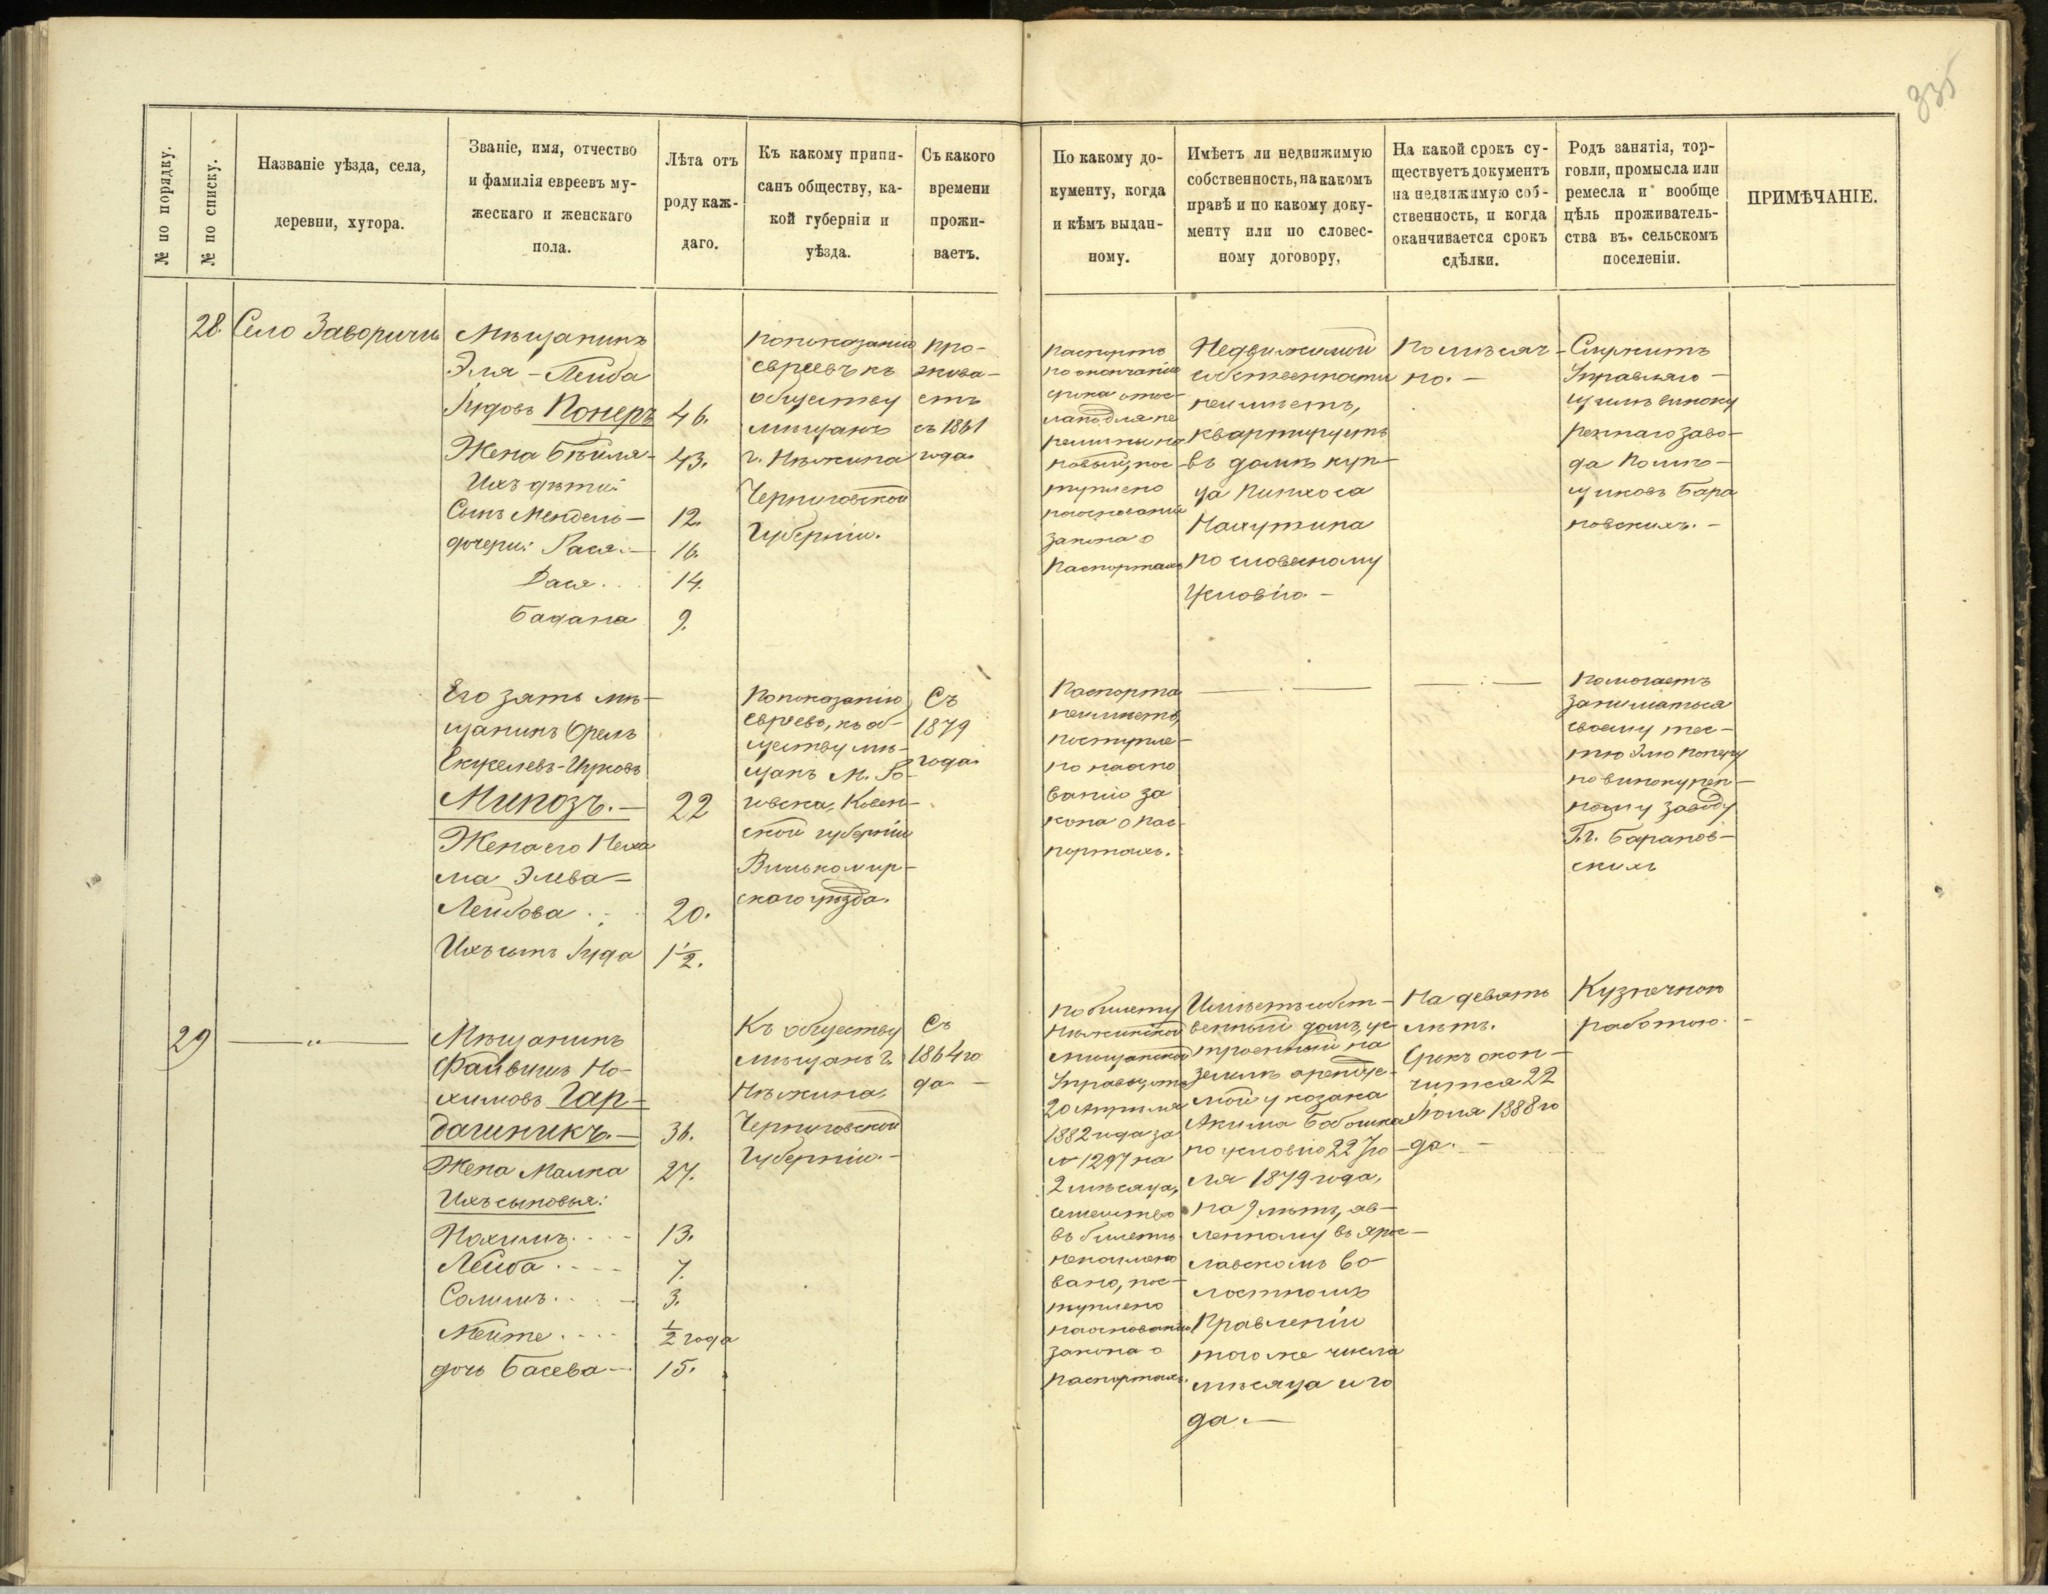 335
№ по порядку.
№ по списку.
Названіе уѣзда, села,
деревни, хутора.
Званіе, имя, отчество
и фамилія евреевъ му-
жескаго и женскаго
пола.
Лѣта отъ
роду каж-
даго.
Къ какому припи-
санъ обществу, ка-
кой губерніи и
уѣзда.
Съ какого
времени
прожи-
ваетъ.
По какому до-
кументу, когда
и кѣмъ выдан-
ному.
Имѣетъ ли недвижимую
собственность, на какомъ
правѣ и по какому доку-
менту или по словес-
ному договору,
На какой срокъ су-
ществуетъ документъ
на недвижимую соб-
ственность, и когда
оканчивается срокъ
сдѣлки.
Родъ занятія, тор-
говли, промысла или
ремесла и вообще
цѣль проживатель-
ства въ сельскомъ
поселеніи.
ПРИМѢЧАНІЕ.
28.
Село Заворичи
Мѣщанинъ
Эля-Лейба
Іудовъ Понеръ 46.
Жена Бейля- 43.
Ихъ дѣти:
Сынъ Мендель- 12.
дочери: Рася.- 16.
Дася... 14.
Бадана 9.
По показанію
евреевъ къ
обществу
мѣщанъ
г. Нѣжина
Черниговской
Губерніи.
Про-
жива-
етъ
съ 1861
года
Паспортъ
по окончаніи
срока отос-
ланъ для пе
ремѣны на
новый, пос-
туплено
на основаніи
закона о
Паспортахъ
Недвижимой
собственности
не имѣетъ,
квартируетъ
въ домѣ куп-
ца Пинхоса
по словесному
Условію.-
Помѣсяч-
но.-
Служитъ
Управляю-
щимъ виноку
реннаго заво-
да Помѣ-
щиковъ Бара
новскихъ.-
Его зять мѣ-
щанинъ Орелъ
Мипозъ.- 22
Жена его Неха
ма Элева-
Лейбова... 20.
Ихъ сынъ Іуда 1 1/2.
По показанію
евреевъ, къ об-
ществу мѣ-
щанъ м. Ро-
говска, Ковен-
ской губерніи
Вилькомир-
скаго уѣзда.
Съ
1879
года.
Паспорта
не имѣетъ,
поступле-
но на осно
ваніи за
кона о пас-
портахъ.
— : —
— : —
Помогаетъ
заниматься
своему тес-
тю Элю Понеру
по винокурен-
ному заводу
Г.г. Баранов-
скихъ
29
— „ —
Мѣщанинъ
Файвишъ Но-
химовъ Гар-
дашникъ.- 36.
Жена Малка 27.
Ихъ сыновья:
Нохимъ.... 13.
Лейба.... 7.
Солимъ.... 3.
Мейте.... 1/2 года
дочь Басева- 15.
Къ обществу
мѣщанъ г.
Нѣжина,
Черниговской
Губерніи.-
Съ
1864 го
да.-
По билету
Нѣжинской
мѣщанской
Управы, отъ
20 Апрѣля
1882 года за
№ 1297 на
2 мѣсяца,
семейство
въ билетѣ
не поимено
вано, пос-
туплено
на основаніи
закона о
паспортахъ.
Имѣетъ собст-
венный домъ, ус-
троенный на
землѣ арендуе-
мой у козака
Акима Бобошка
по условію 22 Ію-
ля 1879 года,
на 9 лѣтъ, яв-
ленному въ Ярос-
лавскомъ Во-
лостномъ
Правленіи
того же числа
мѣсяца и го
да.-
На девять
лѣтъ.
Срокъ окон-
чится 22
Іюля 1888 го
да.-
Кузнечною
работою.-